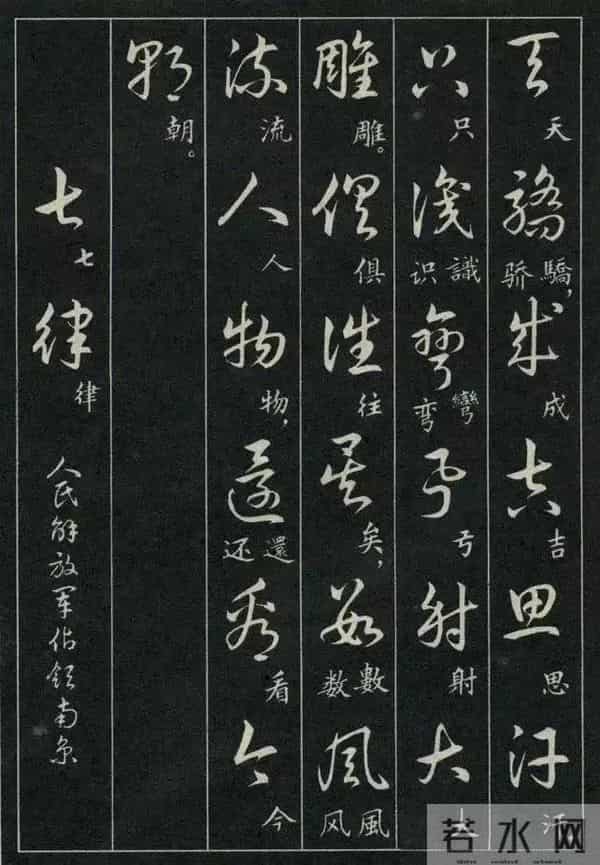 天驕成吉思汗
天 驕，骄 成 吉 思 汗
只識彎弓射大
只 識识 彎弯 弓 射 大
雕俱往矣數風
雕。 俱 往 矣， 數数 風风
流人物還看今
流 人 物， 還还 看 今
朝
朝。
七律
七 律
人民解放军佔领南京
若水网